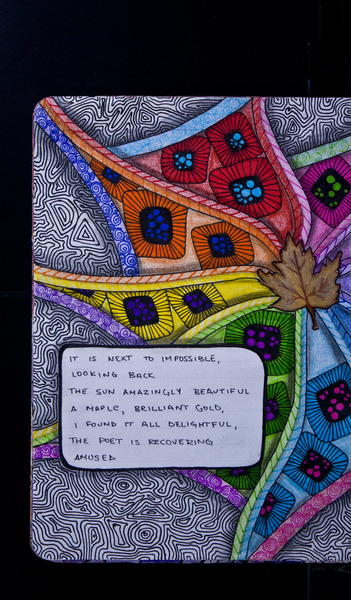 IT IS NEXT TO IMPOSSIBLE,
LOOKING BACK
THE SUN AMAZINGLY BEAUTIFUL
A MAPLE, BRILLIANT GOLD,
I FOUND IT ALL DELIGHTFUL,
THE POET IS RECOVERING
AMUSED